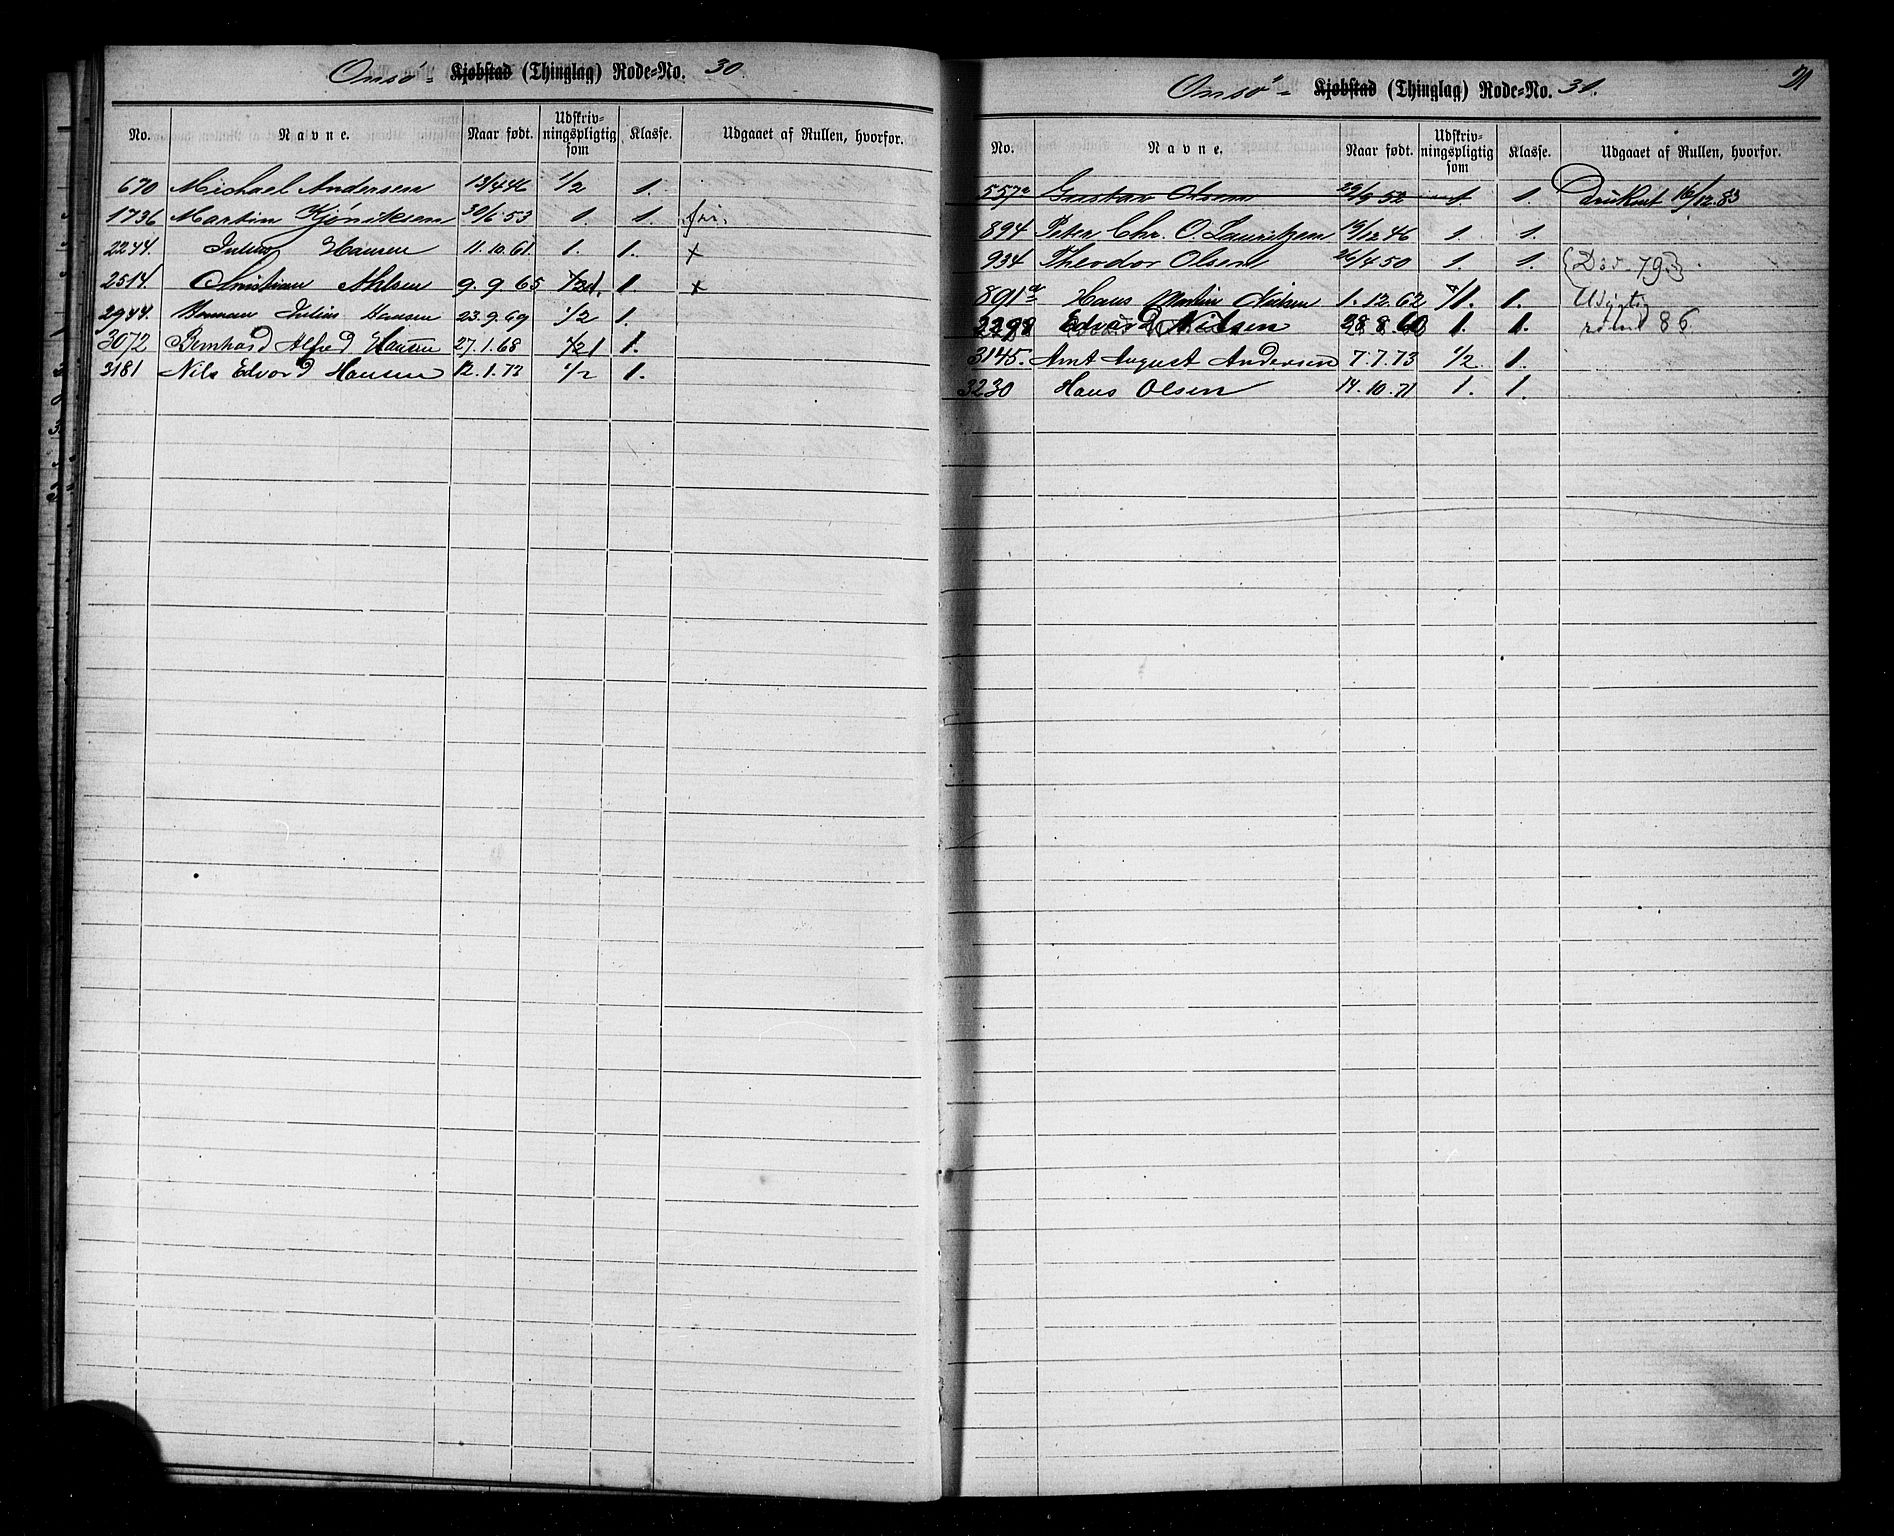 Onsö- Kjøbstad (Thinglag) Rode-No. 30
No. Navne. Naar født. Udskriv-ningspligtig som Klasse. Udgaaet af Rullen, hvorfor.
670 Michael Andersen 13/4 46 1/2 1.
1736 Martin Kjönitsen 30/6 53 1. 1. fri.
2244. Julius Hansen 11.10.61. 1. 1. x
2514. Christian Ahlsen 9.9 65 1. x
2944. Herman Julius Hansen 23.9.69 1/2 1.
3072 Bernhard Alfred Hansen 27.1.68 1.
3181 Nils Edvard Hansen 12.1.73 1/2 1.
Onsö- Kjøbstad (Thinglag) Rode-No. 31. 21
No. Navne. Naar født. Udskriv-ningspligtig som Klasse. Udgaaet af Rullen, hvorfor.
557a Gustav Olsen 29/9 52 1. 1. Druknet 16/12.83
894 Peter Chr. O. Lauritzen 19/12 46 1. 1.
934 Theodor Olsen 26/4 50 1. 1. (Död. 79)
891a Hans Martin Nielsen 1.12.62 1. 1. Udygtig
2298 Edvard Nilsen 28.8.60 1. 1. 86.
3145. Ant August Andersen 7.7.73 1/2 1.
3230 Hans Olsen 14.10.71 1. 1.